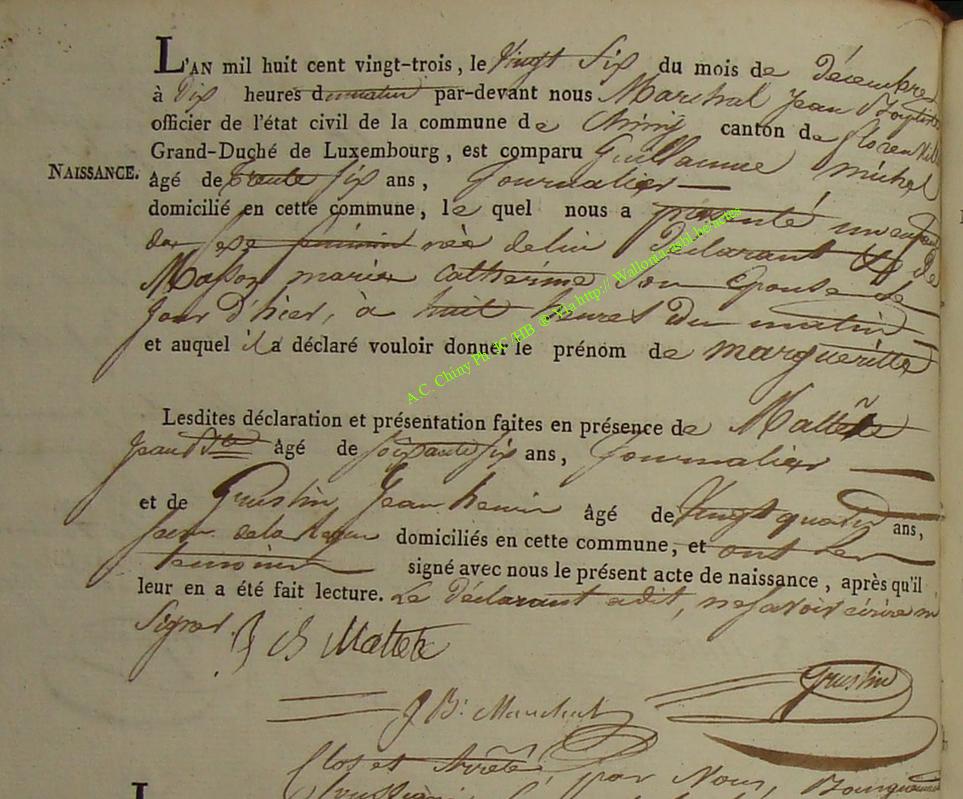 L'AN mil huit cent vingt-trois, le Vingt Six du mois de décembre
à Dix heures du matin par-devant nous Marchal Jean Baptiste
officier de l'état civil de la commune de Chiny canton de florenville
Grand-Duché de Luxembourg, est comparu Guillaume michel
NAISSANCE.
âgé de trente six ans, Journalier
domicilié en cette commune, le quel nous a présenté un enfant
du sexe féminin née de lui Déclarant et de
Masson marie Catherine son Epouse le
Jour d'hier, à huit heures du matin
et auquel il a déclaré vouloir donner le prénom de margueritte
A.C. Chiny Ph. JC /HB @ Via http:// Wallonia-asbl.be/actes
Lesdites déclaration et présentation faites en présence de
Jean Bte âgé de soixante six ans, Journalier
et de Grustin Jean henri âgé de Vingt quatre ans,
domiciliés en cette commune, et ont les
temoins signé avec nous le présent acte de naissance, après qu'il
leur en a été fait lecture. Le Déclarant a dit, ne savoir écrire ni
Signer.
Grustin
J Bt Marchal
Clos et Arrêté par Nous,
L